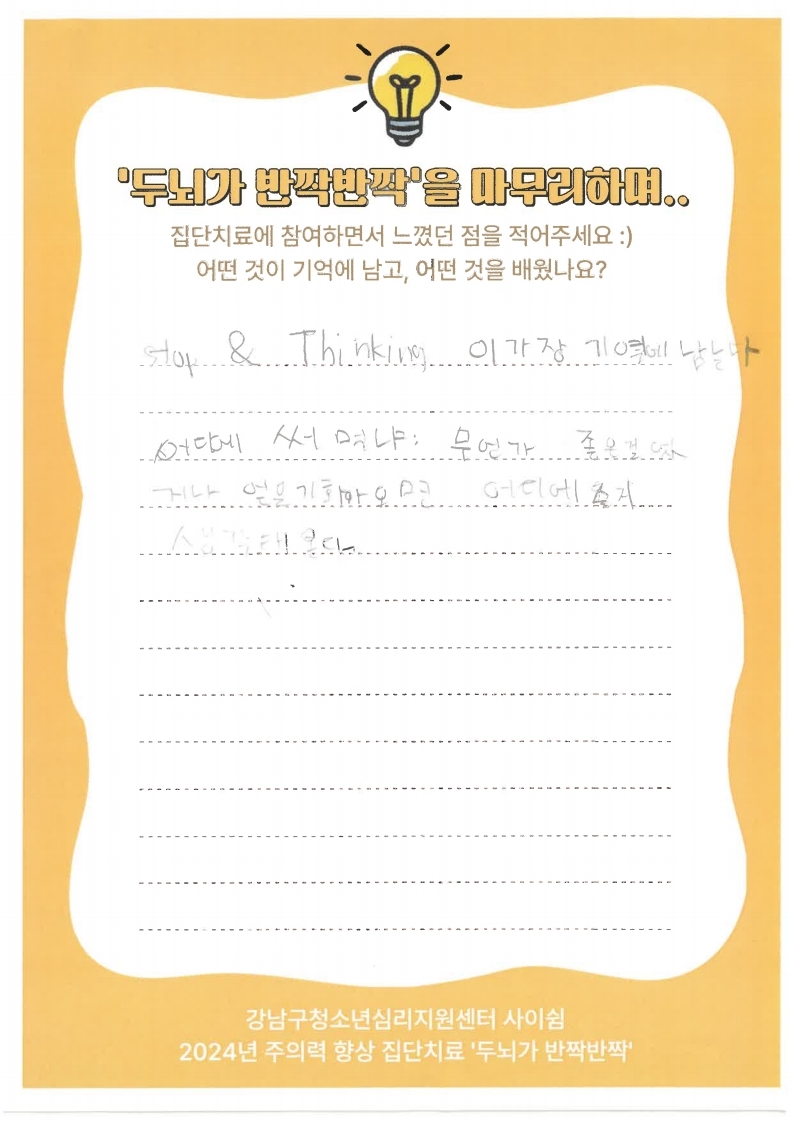 '두뇌가 반짝반짝'을 마무리하며..
집단치료에 참여하면서 느꼈던 점을 적어주세요 :)
어떤 것이 기억에 남고, 어떤 것을 배웠나요?
stop & Thinking 이가장 기억에 남는다
어따에 써 먹냐: 무언가 좋은걸
거나 얻을기회가오면 어디에 쓸지
강남구청소년심리지원센터 사이쉼
2024년 주의력 향상 집단치료 '두뇌가 반짝반짝'